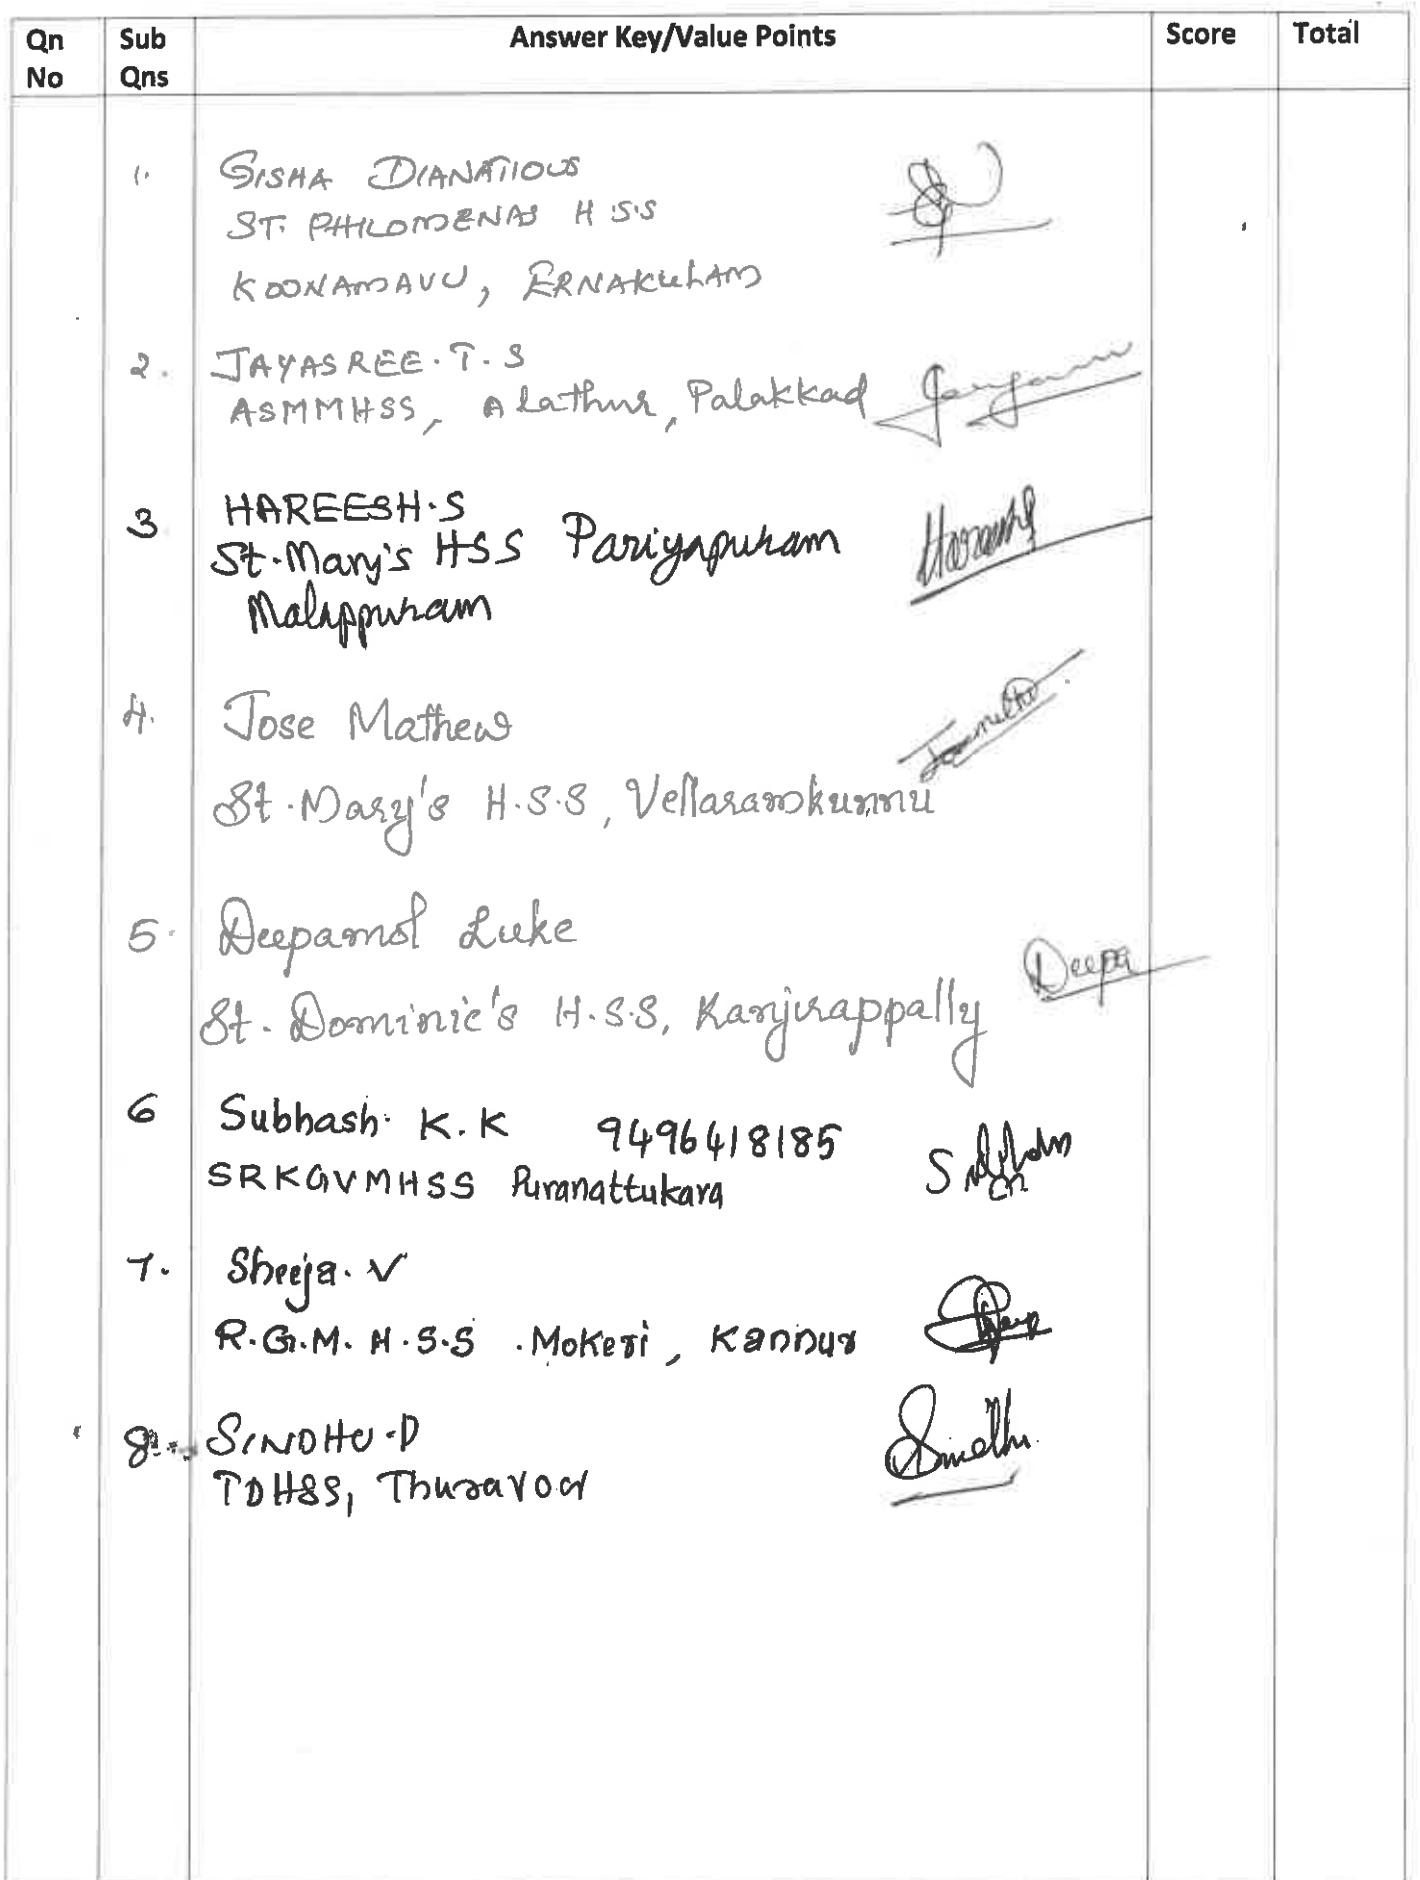 Qn No Sub Qns Answer Key/Value Points Score Total
1. GISHA DIANATIOUS
ST. PHILOMENAS H S.S
KOONAMAVU, ERNAKULAM
2. JAYASREE. T. S
ASMMHSS, Alathur, Palakkad
3 HAREESH.S
St. Mary's HSS Pariyapuram
Malappuram
4. Jose Mathew
St. Mary's H.S.S, Vellaramkunnu
5. Deepamol Luke
Deepa
St. Dominic's H.S.S, Kanjirappally
6 Subhash K.K 9496418185
SRKGVMHSS Puranattukara
7. Sheeja. V
R.G.M. H.S.S. Mokeri, Kannur
8. SINDHU.D
Sindhu
TDHSS, Thuravoor